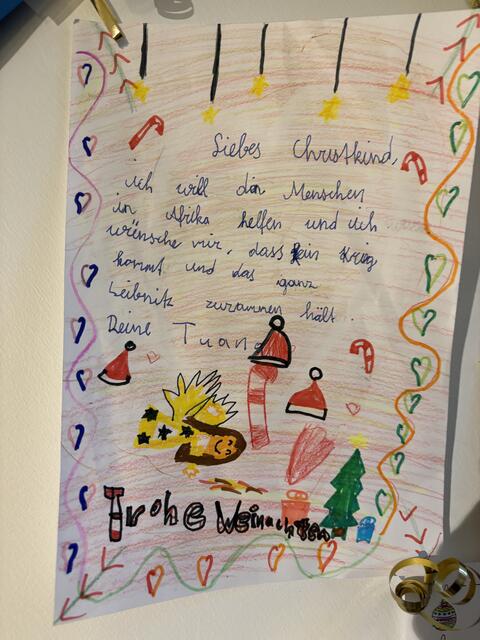 Liebes Christkind,
ich will den Menschen
in Afrika helfen und ich
wünsche mir, dass kein Krieg
kommt und das ganz
Leibnitz zusammen hält.
Deine Tuana
Frohe Weinachten